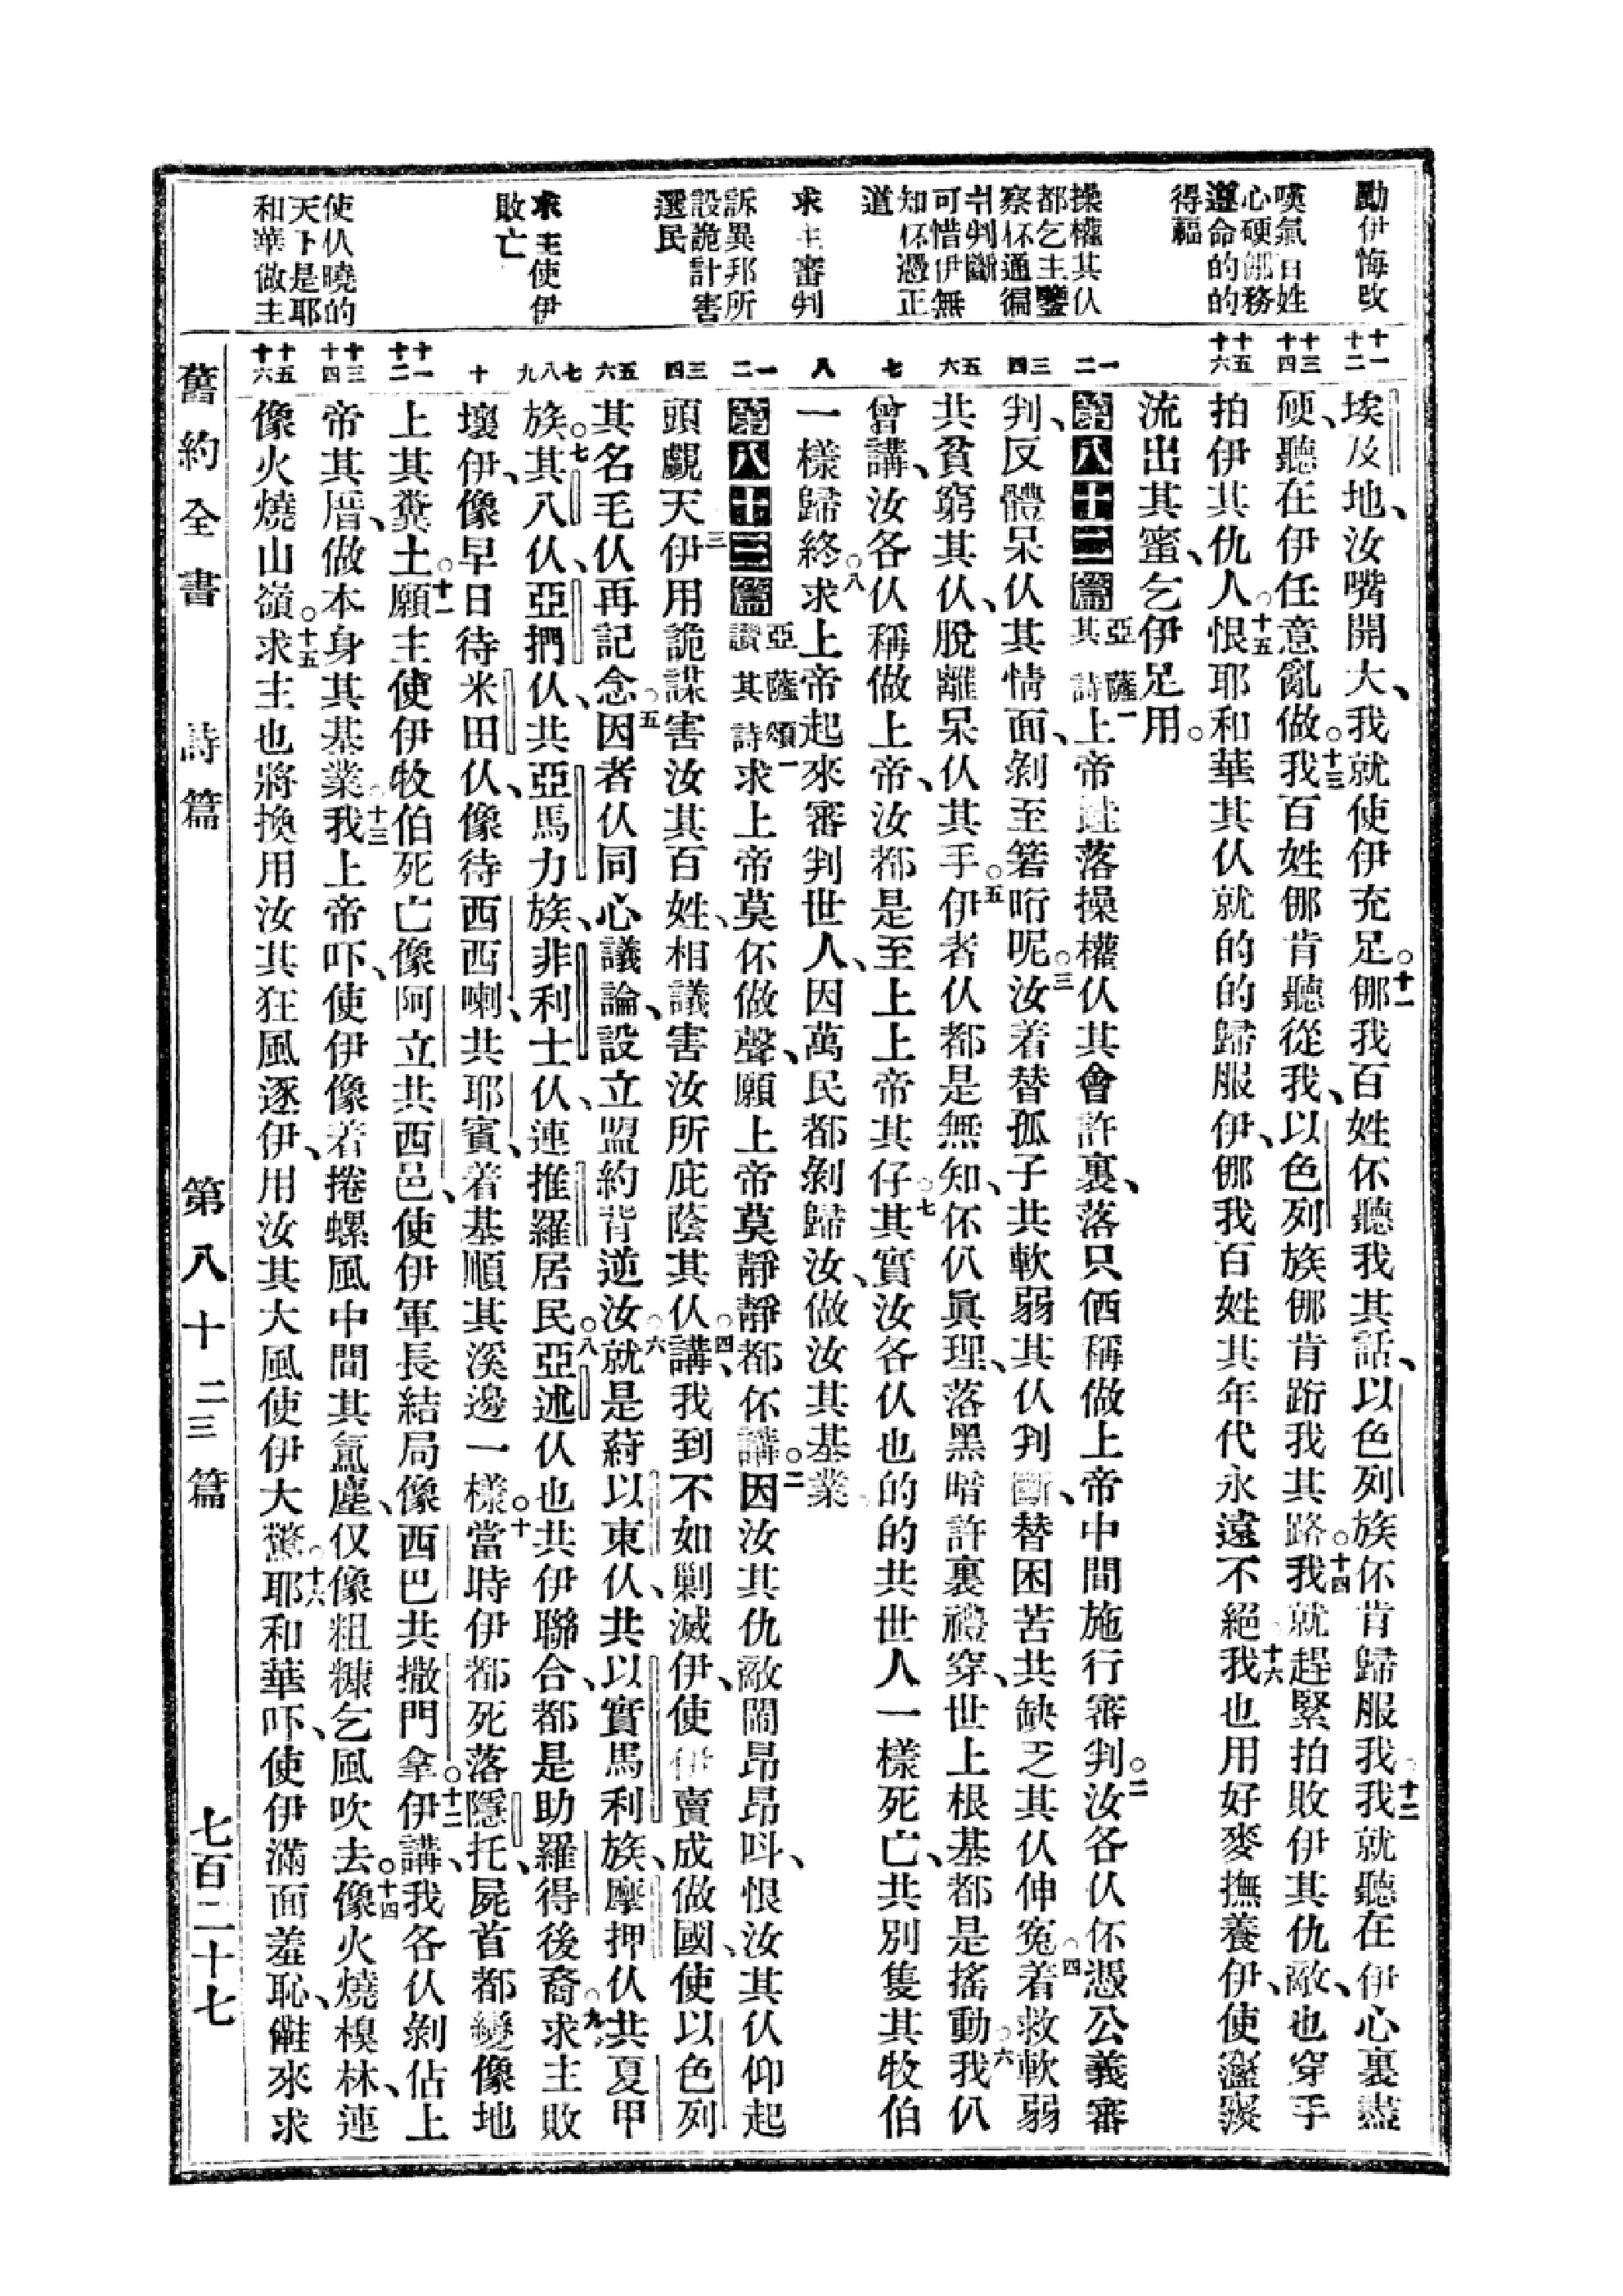 勸伊悔改
嘆氣百姓
心硬那務
遵命的的
得福
操權其仈
都乞主鑒
察伓通徧
斗判斷
可惜伊無
知伓憑正
道
求主審判
訴異邦所
設詭計害
選民
求主使伊
敗亡
使仈曉的
天下是耶
和華做主
十一 十二
十三 十四
十五 十六
一 二
三 四
五 六
七
八
一 二
三 四
五 六
七 八 九
十
十一 十二
十三 十四
十五 十六
埃及地、汝嘴開大、我就使伊充足。十一那我百姓伓聽我其話、以色列族伓肯歸服我。十二我就聽在伊心裏盡
硬、聽在伊任意亂做。十三我百姓那肯聽從我、以色列族那肯跡我其路。十四我就趕緊拍敗伊其仇敵、也穿手
拍伊其仇人。十五恨耶和華其仈就的的歸服伊、那我百姓其年代永遠不絕。十六我也用好麥撫養伊、使
流出其蜜、乞伊足用。
第八十二篇 亞薩其詩 一上帝 落操權仈其會許裏、落只伵稱做上帝中間施行審判。二汝各仈伓憑公義審
判、反體呆仈其情面、剝至箬昕呢。三汝着替孤子共軟弱其仈判斷、替困苦共缺乏其仈伸寃。四着救軟弱
共貧窮其仈、脫離呆仈其手。五伊者仈都是無知、伓仈眞理、落黑暗許裏禮穿、世上根基都是搖動。六我仈
曾講、汝各仈稱做上帝、汝都是至上上帝其仔。七其實汝各仈也的的共世人一樣死亡、共別隻其牧伯
一樣歸終。八求上帝起來審判世人、因萬民都剝歸汝、做汝其基業。
第八十三篇 亞薩頌讚其詩 一求上帝莫伓做聲、願上帝莫靜靜都伓講。二因汝其仇敵鬧昂昂呌、恨汝其仈仰起
頭覷天。三伊用詭謀害汝其百姓、相議害汝所庇蔭其仈。四講、我到不如剿滅伊、使伊賣成做國、使以色列
其名毛仈再記念。五因者仈同心議論、設立盟約背逆汝。六就是蒔以東仈、共以實馬利族、摩押仈、共夏甲
族。七其八仈、亞捫仈、共亞馬力族、非利士仈、連推羅居民。八亞述仈也共伊聯合、都是助羅得後裔。九求主敗
壞伊、像早日待米田仈、像待西西喇、共耶賓、着基順其溪邊一樣。十當時伊都死落隱托、屍首都變像地
上其糞土。十一願主使伊牧伯死亡像阿立共西邑、使伊軍長結局像西巴共撒門拿。十二伊講、我各仈剝佔上
帝其厝、做本身其基業。十三我上帝吓、使伊像着捲螺風中間其氳塵、仅像粗糠乞風吹去。十四像火燒樕林、連
像火燒山嶺。十五求主也將換用汝其狂風逐伊、用汝其大風使伊大驚。十六耶和華吓、使伊滿面羞恥、儺來求
舊約全書 詩篇 第八十二三篇 七百二十七